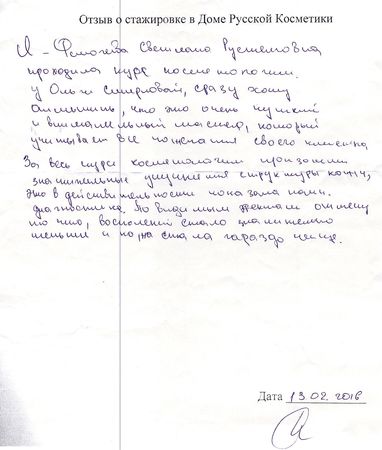 Отзыв о стажировке в Доме Русской Косметики
Я - Светлана Рустемовна
проходила курс косметологии.
у Ольги Смирновой, сразу хочу
отметить, что это очень чуткий
и внимательный мастер, который
учитывает все пожелания своего клиента.
За весь курс косметологии произошли
значительные улучшения структуры кожи,
это в действительности показала нам
диагностика. По видимым отмечу
то что, воспалений стало значительно
меньше и кожа стала гораздо чище.
Дата 13.02.2016